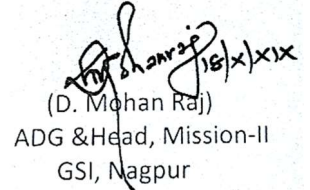 18/x/xix
(D. Mohan Raj)
ADG &Head, Mission-II
GSI, Nagpur